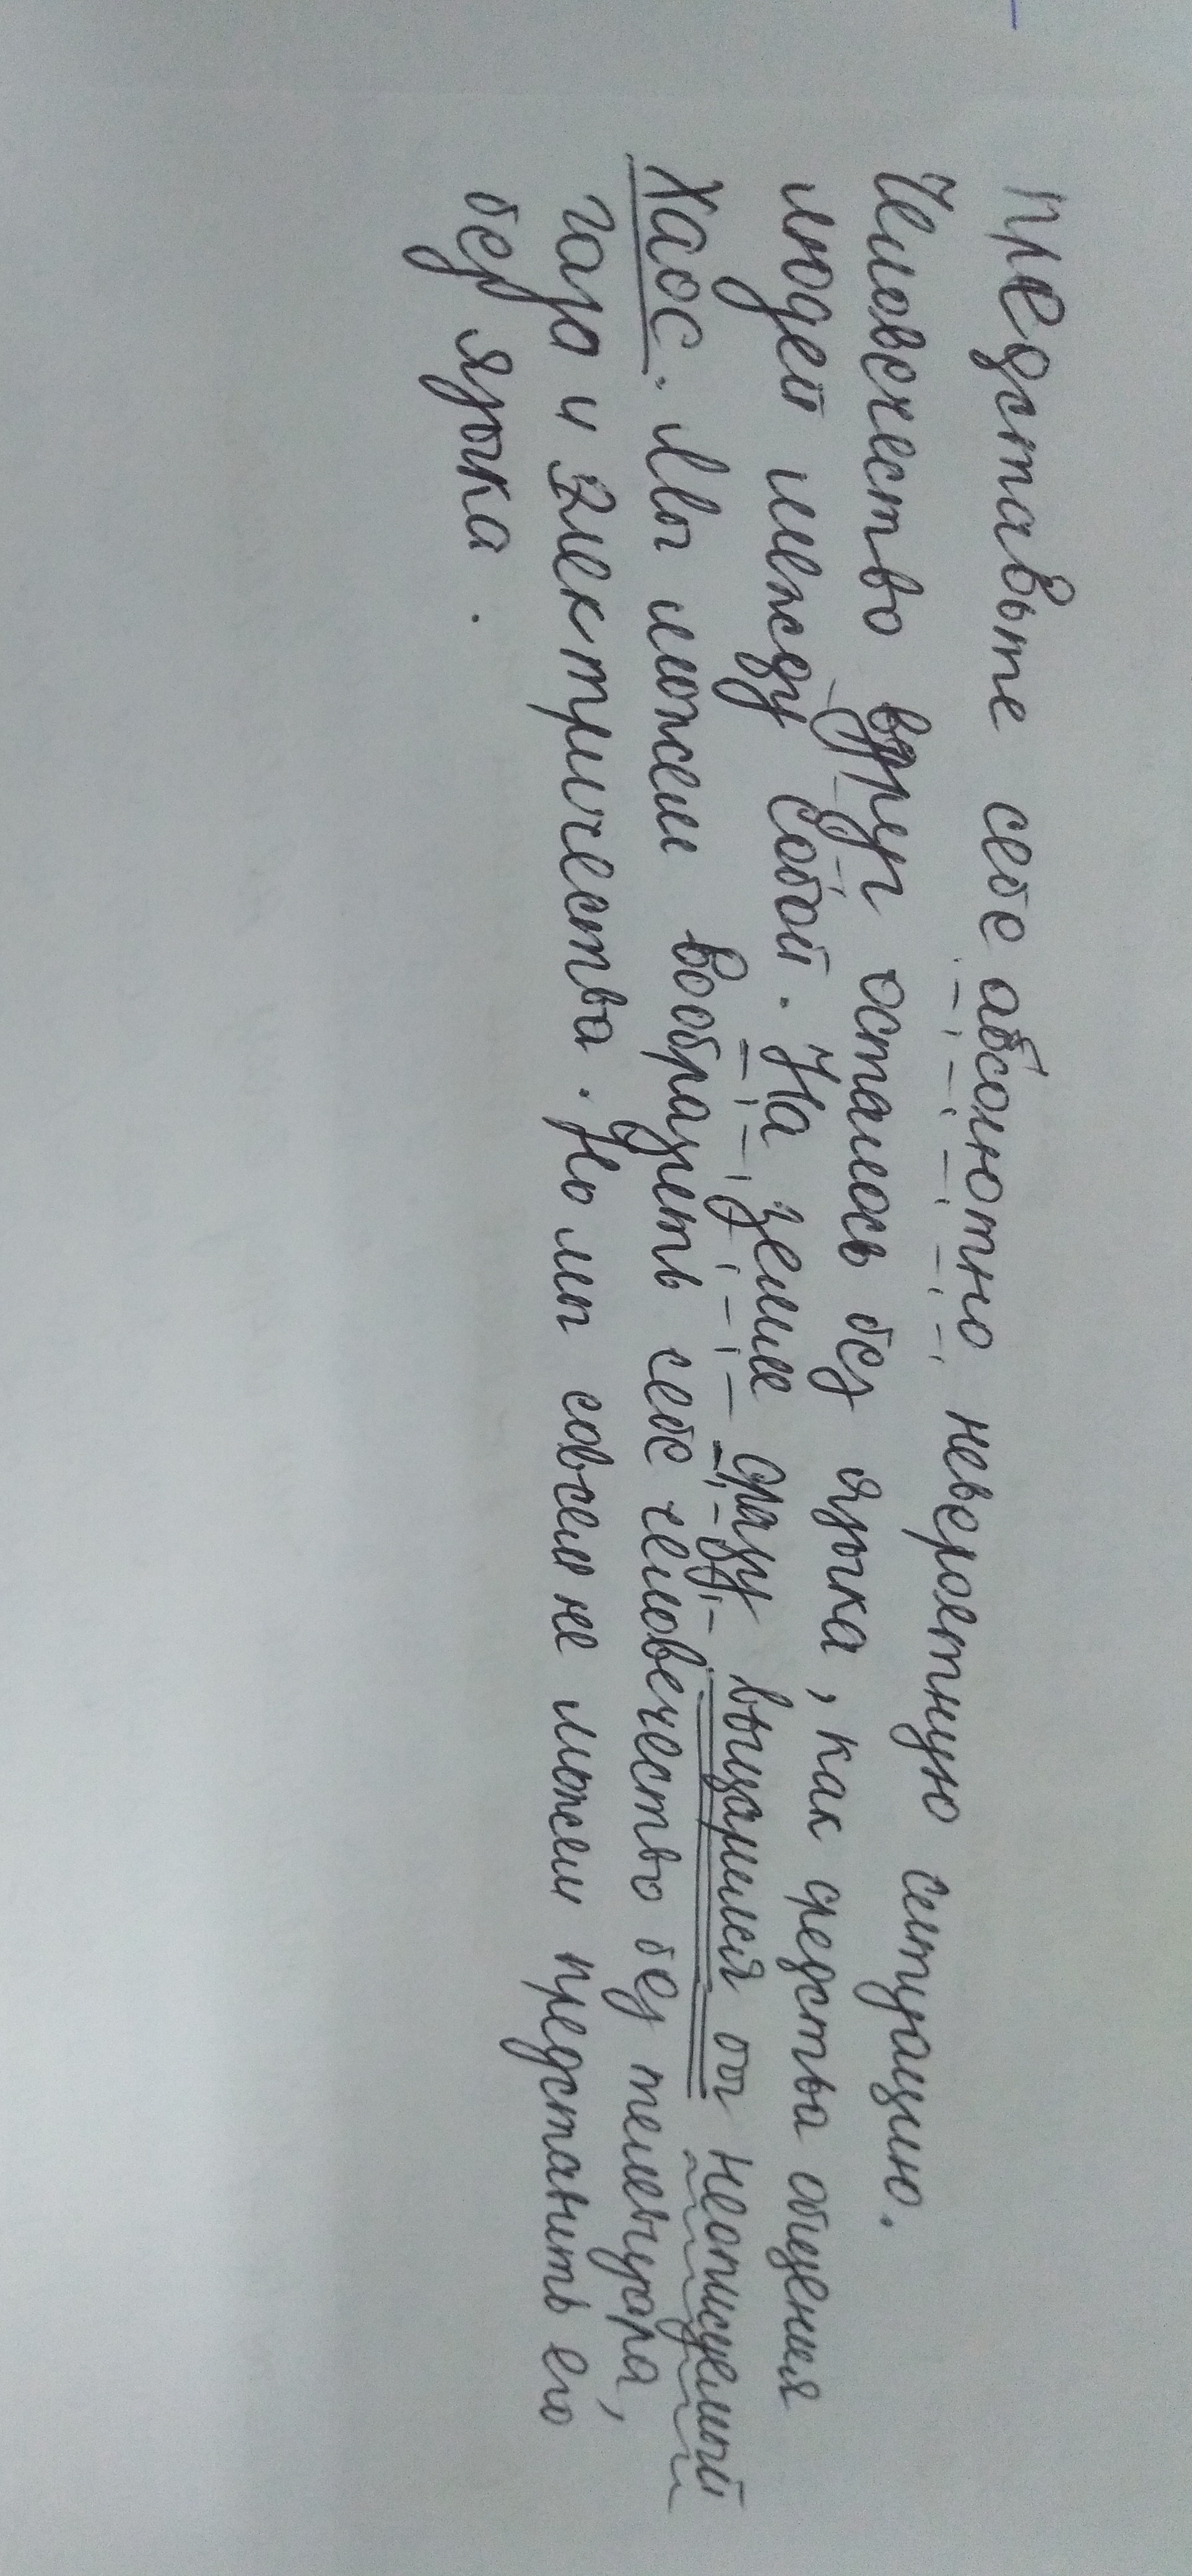 Представьте себе абсолютно невероятную ситуацию.
Человечество вдруг осталось без языка, как средства общения
людей между собой. На земле сразу выцарился бы неописуемый
хаос. Мы можем вообразить себе человечество без телевизора,
газа и электричества. Но мы совсем не можем представить его
без языка.